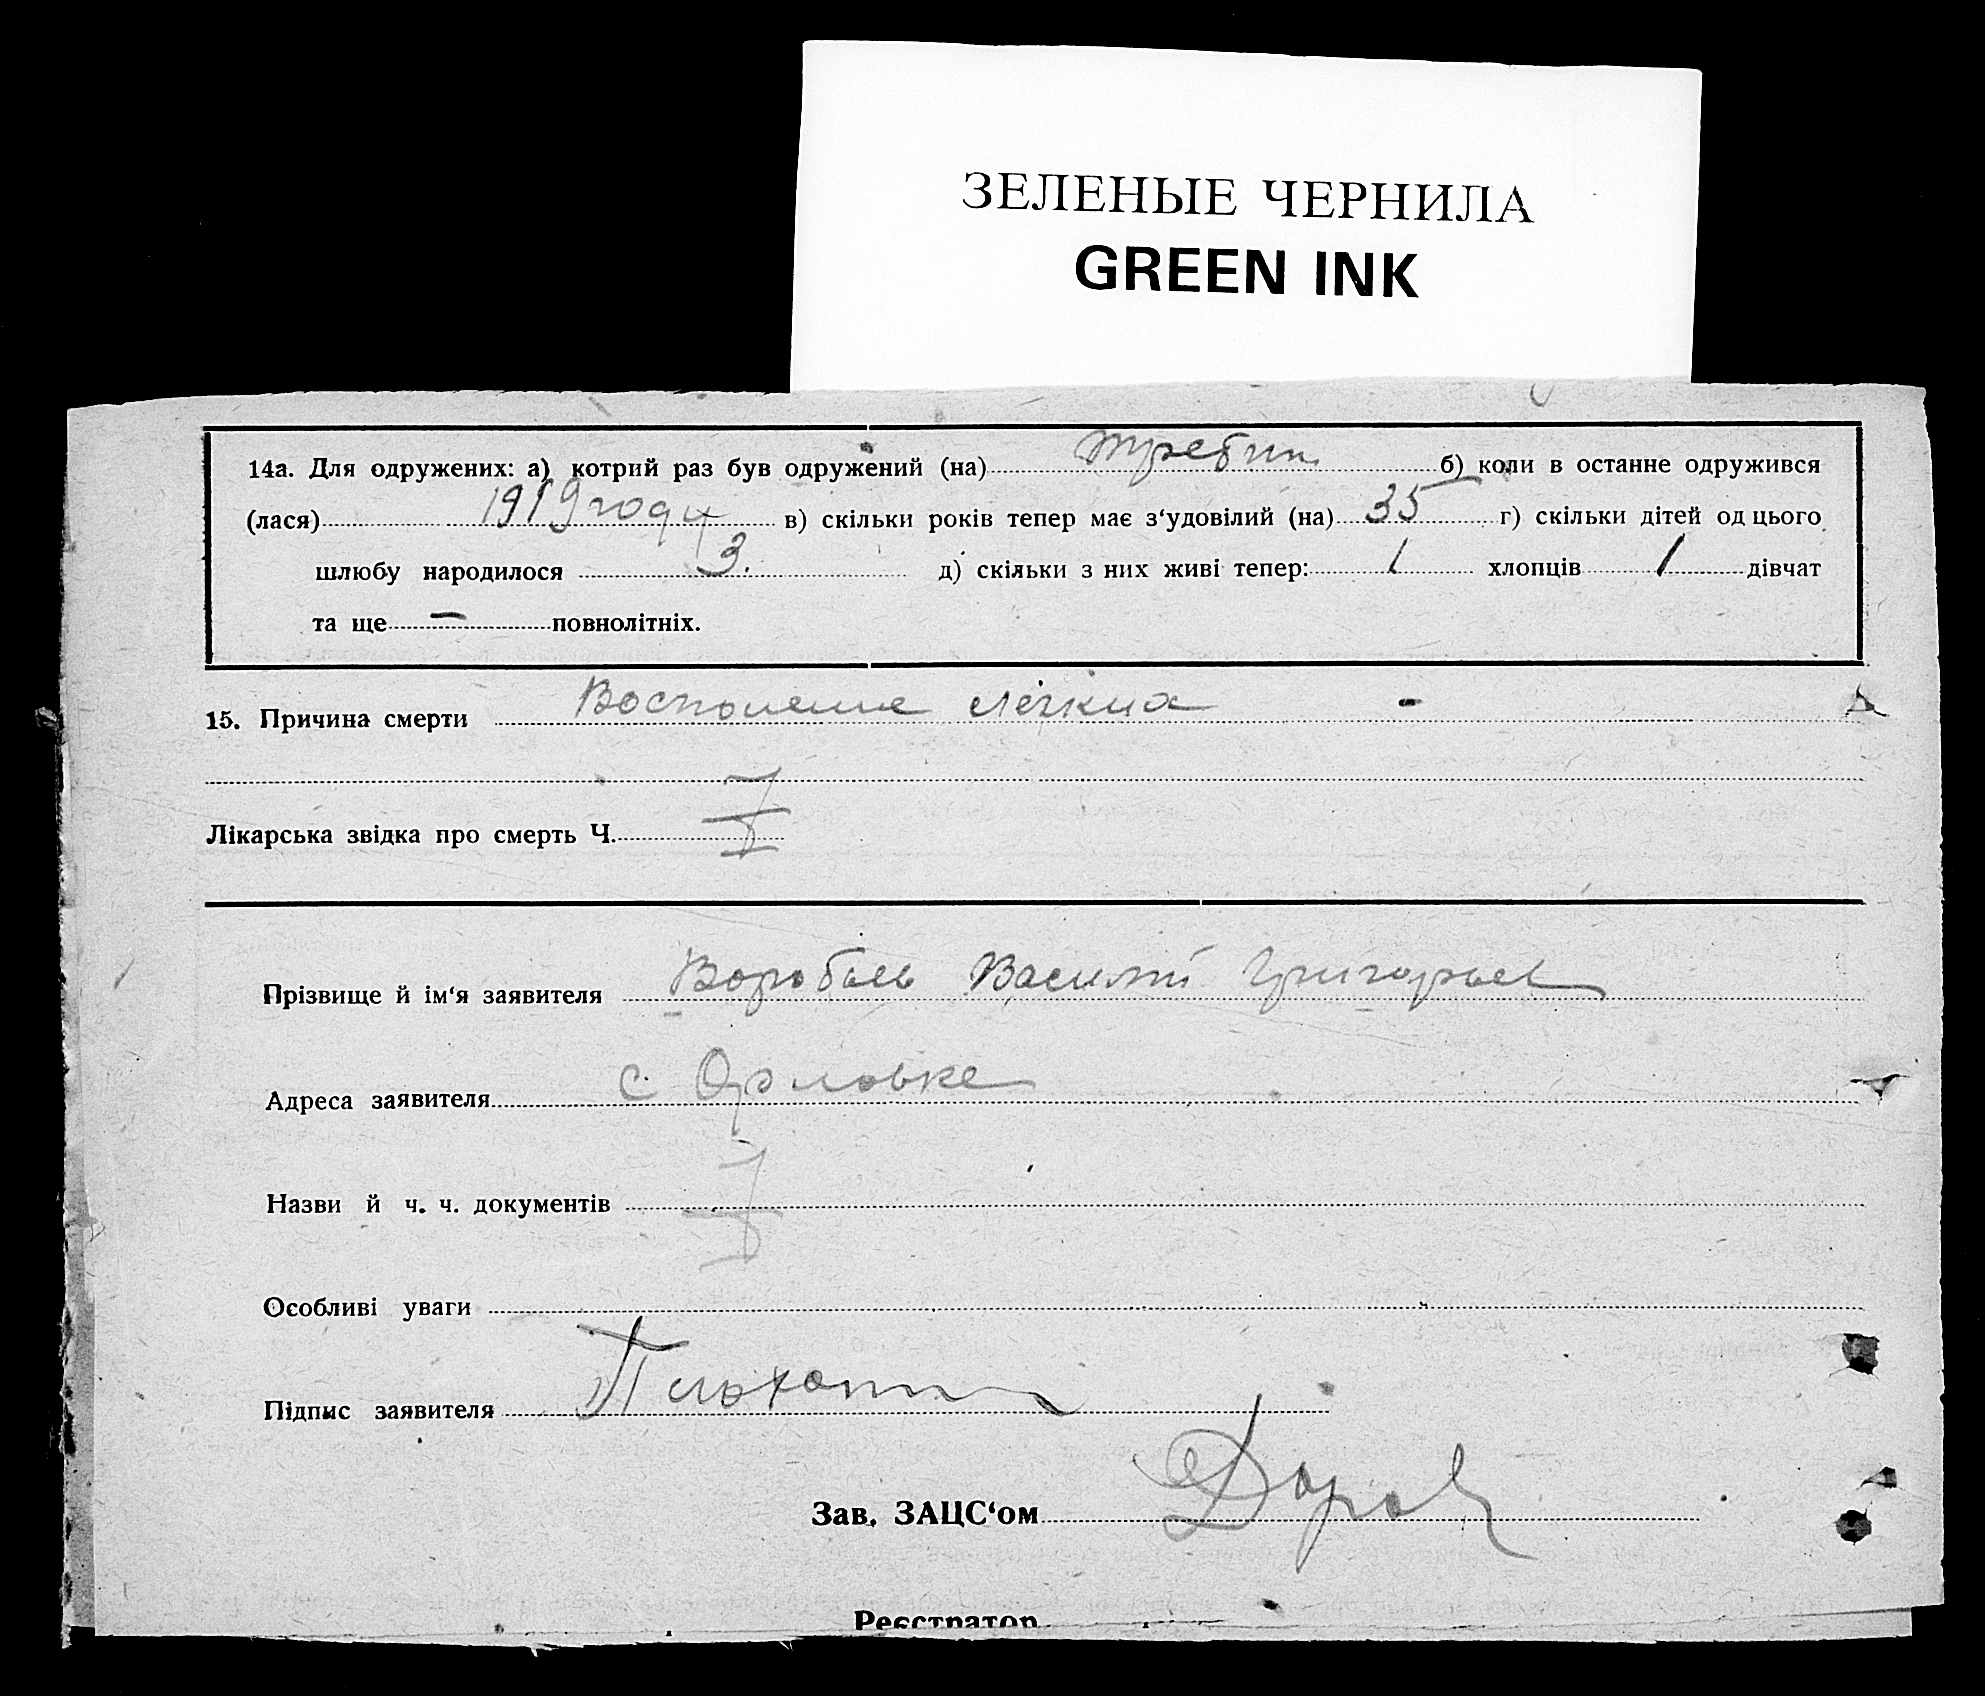 ЗЕЛЕНЫЕ ЧЕРНИЛА
GREEN INK
14а. Для одружених: а) котрий раз був одружений (на) б) коли в останнє одружився
(лася) 1919 году в) скільки років тепер має з‘удовілий (на) 35 г) скільки дітей од цього
шлюбу народилося 3. д) скільки з них живі тепер: 1 хлопців 1 дівчат
та ще — повнолітніх.
15. Причина смерти Восполение легких -
Лікарська звідка про смерть Ч.
Прізвище й ім‘я заявителя Василий Григорьев
Адреса заявителя с. Орловке
Назви й ч. ч. документів
Особливі уваги
Підпис заявителя
Зав. ЗАЦС‘ом
Реєстратор